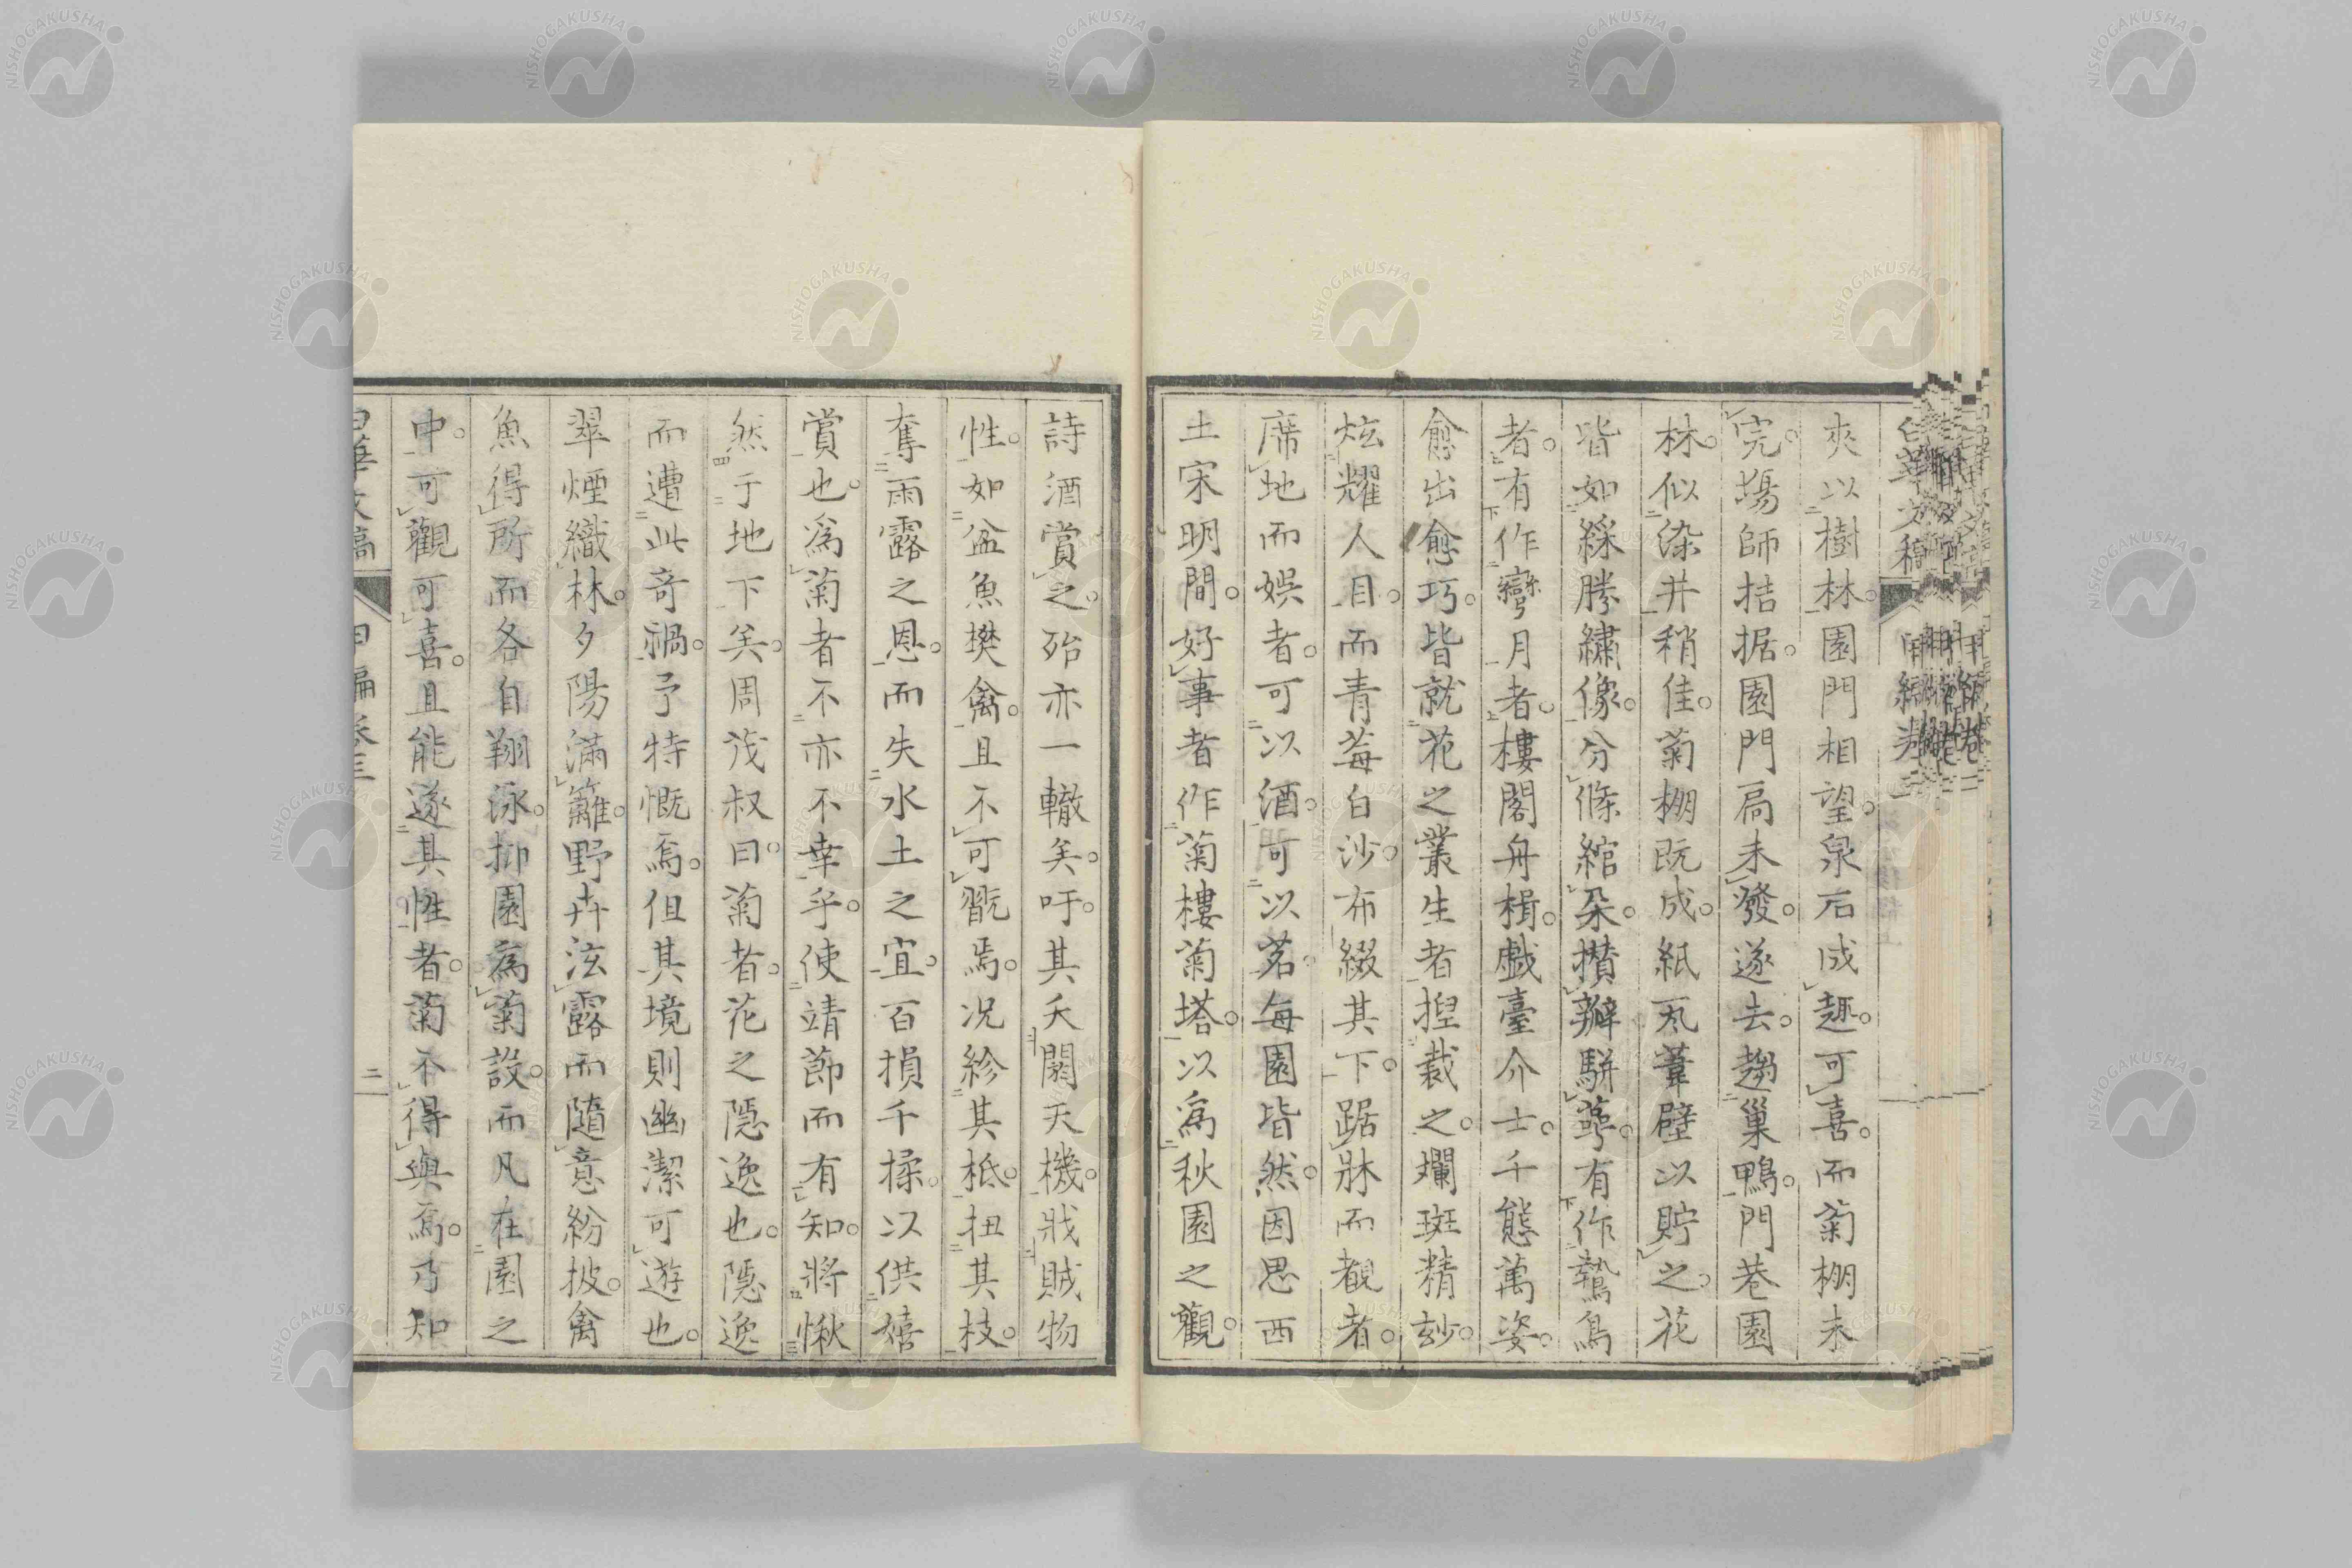 夾以樹林。園門相望。泉石成趣。可喜。而菊棚未
完。場師拮据。園門扃未發。遂去。趨巢鴨。門巷園
林。似染井稍佳。菊棚既成。紙瓦葦壁以貯之。花
皆如綵勝繡像。分條綰朶。攅瓣駢蕚。有作鷙鳥
者。有作彎月者。樓閣舟楫。戲臺介士。千態萬姿。
愈出愈巧。皆就花之叢生者揑裁之。斕斑精玅。
炫耀人目。而青莓白沙。布綴其下。踞牀而觀者。
席地而娯者。可以酒。可以茗。每園皆然。因思西
土宋明間。好事者作菊樓菊塔。以為秋園之觀。
詩酒賞之。殆亦一轍矣。吁。其夭閼天機。戕賊物
性。如盆魚樊禽。且不可翫焉。況紾其柢。扭其枝。
奪雨露之恩。而失水土之宜。百損千揉。以供嬉
賞也。為菊者不亦不幸乎。使靖節而有知。將愀
然于地下矣。周茂叔曰。菊者。花之隱逸也。隱逸
而遭此奇禍。予特慨焉。但其境則幽潔可遊也。
翠煙織林。夕陽滿籬。野卉泫露而隨意紛披。禽
魚得所而各自翔泳。抑園為菊設。而凡在園之
中。可觀可喜。且能遂其性者。菊不得與焉。乃知
文稿
二
白華文稿